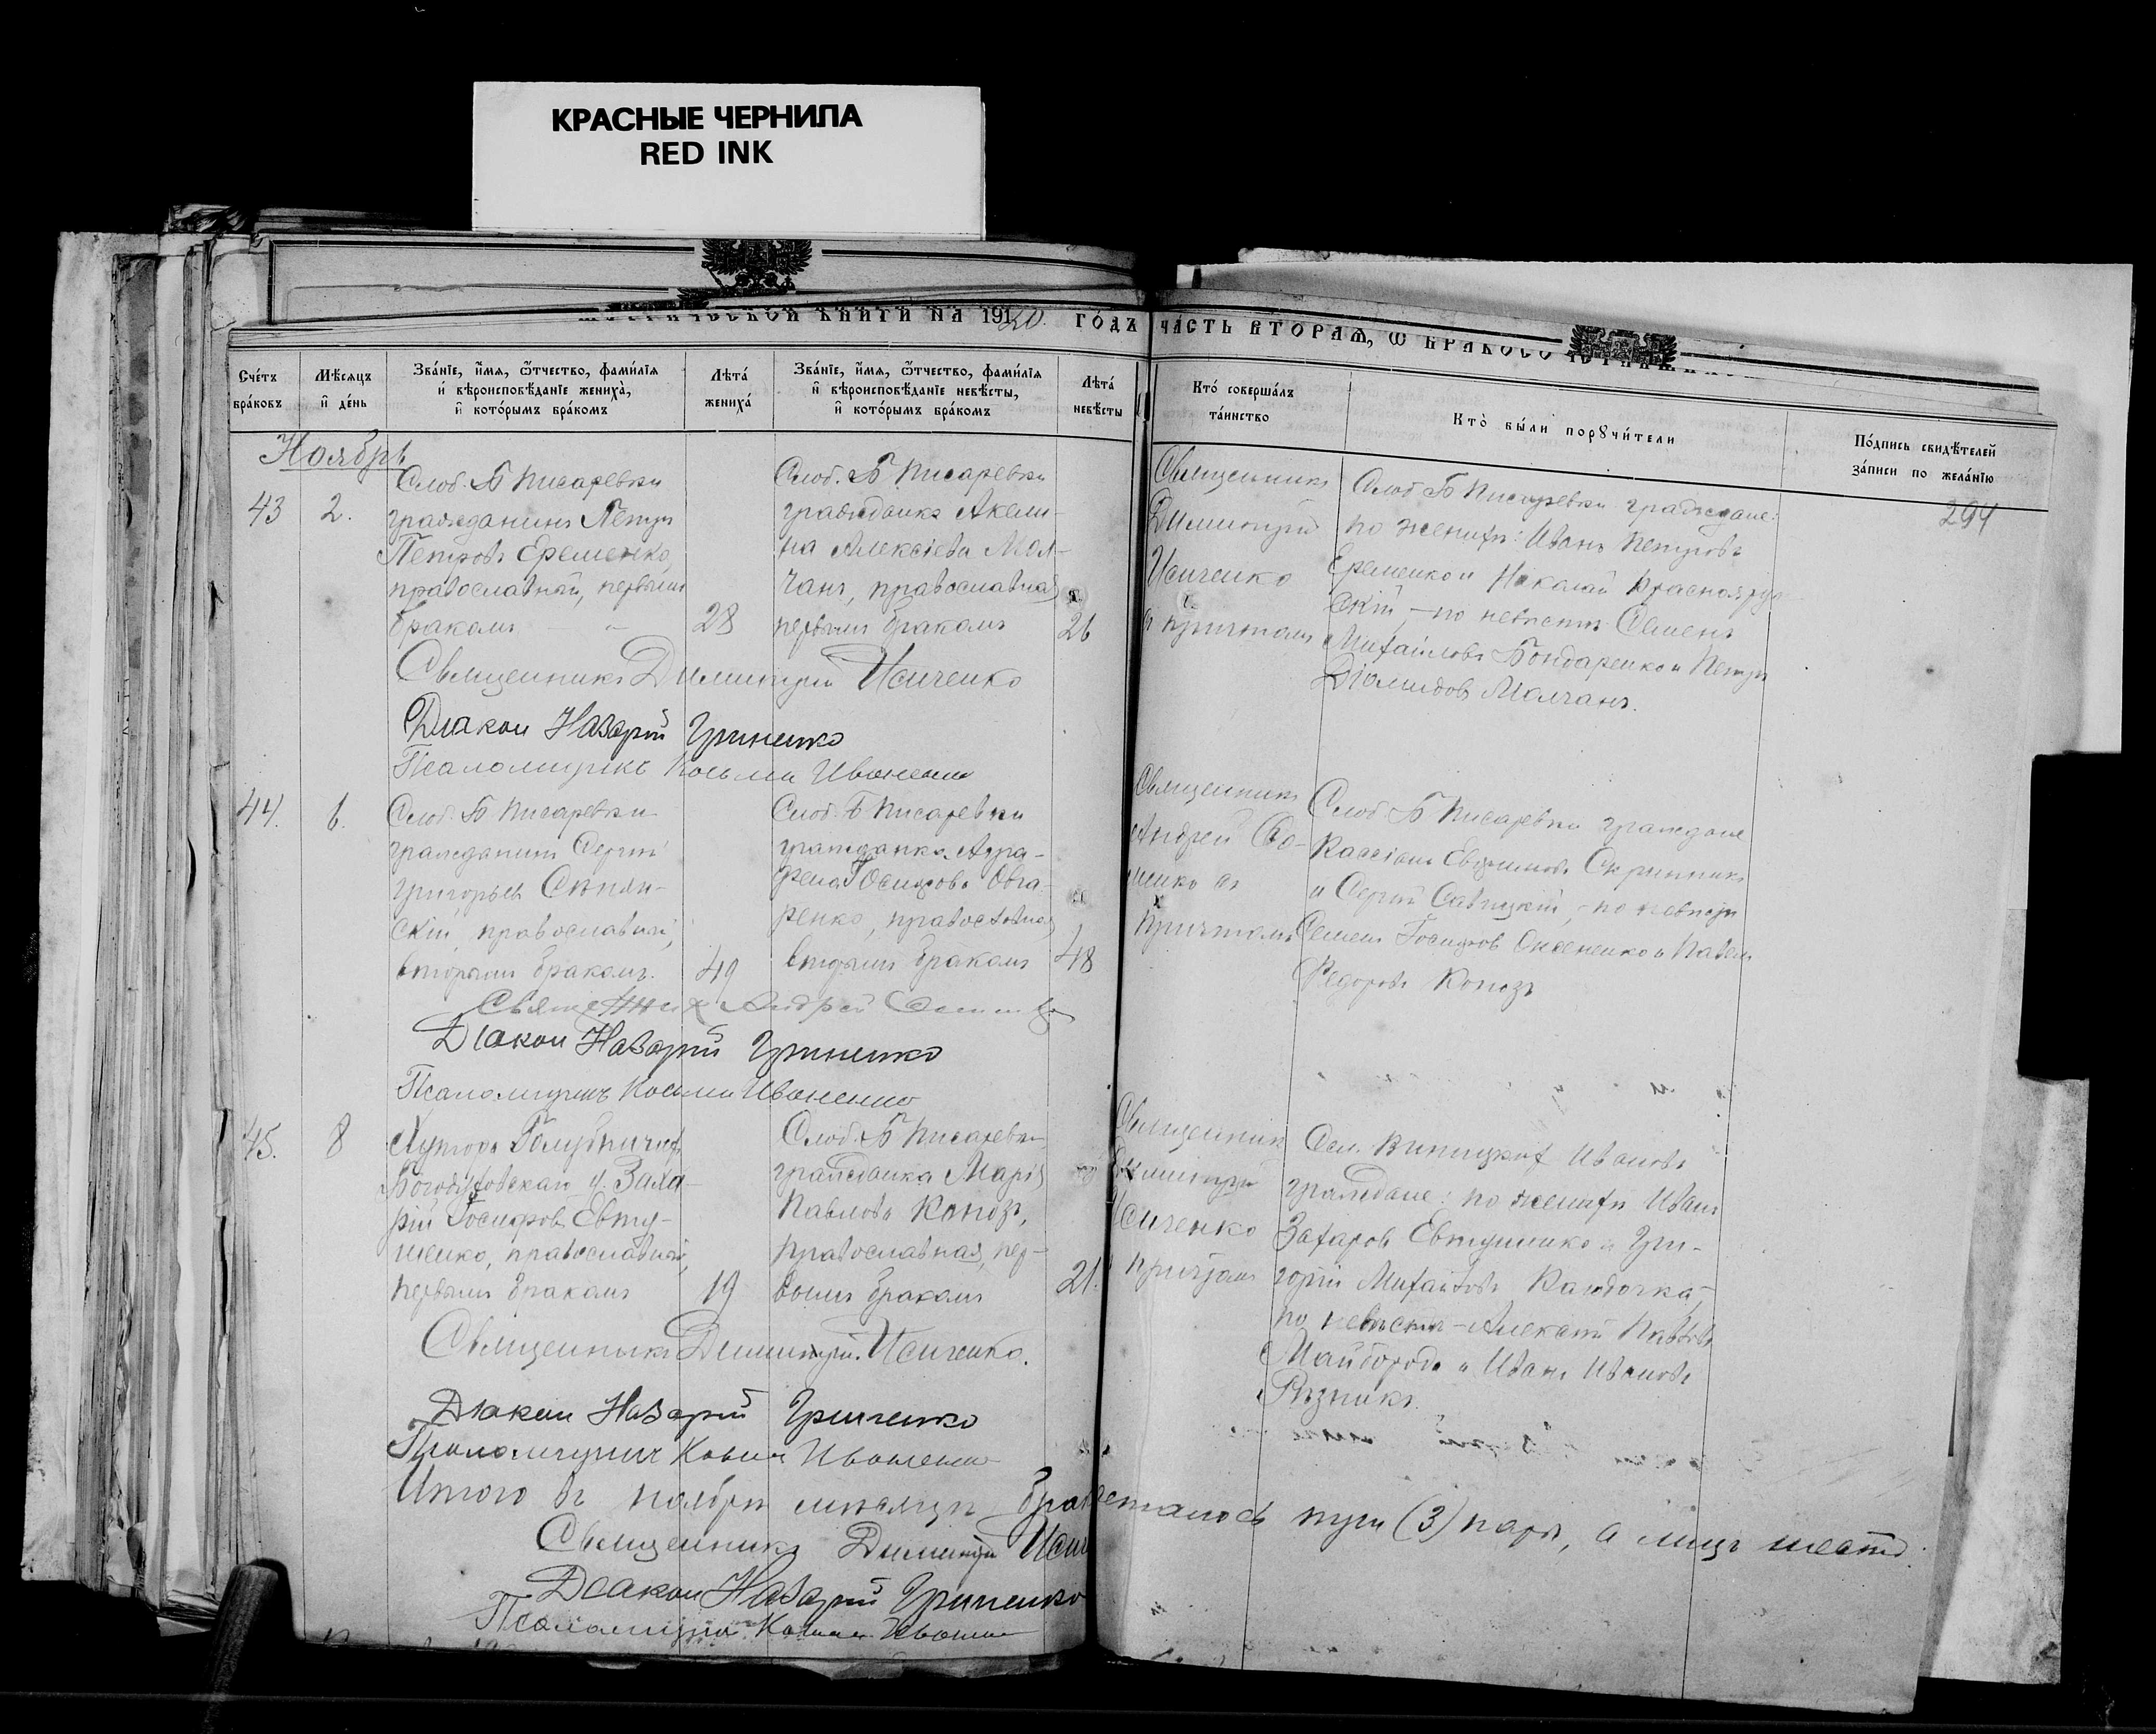 КРАСНЫЕ ЧЕРНИЛА
RED INK
КНИГИ НА 1920 ГОДЪ
ЧАСТЬ ВТОРАЯ, Ѡ
Счетъ браковъ
Мѣсяцъ и день
Званіе, имя, ѿчество, фамилія и вѣроисповѣданіе жениха, и которымъ бракомъ
Лѣта жениха
Званіе, имя, ѿчество, фамилія и вѣроисповѣданіе невѣсты, и которымъ бракомъ
Лѣта невѣсты
Кто совершалъ таинство
Кто были порꙋчители
Подпись свидѣтелей записи по желанію
294
Ноябрь
43
2.
Слоб. Б Писаревки
гражданинъ Петръ
Петровъ Еременко,
православный, первымъ
бракомъ
28
Слоб. Б Писаревки
гражданка Акели-
на Алексіева Мол-
чанъ, православная
первымъ бракомъ
26
Священникъ
Димитрій
Исиченко
съ причтомъ
Слоб. Б Писаревки граждане:
по женихѣ: Иванъ Петровъ
Еременко и Николай Краснояруж-
скій, – по невѣстѣ Семенъ
Михаиловъ Бондаренко и Петръ
Діомидовъ Молчанъ.
Священникъ Димитрій Исиченко
Діаконъ Назарій Гриненко
Псаломщикъ Косьма Иваненко
44.
6.
Слоб. Б Писаревки
гражданинъ Сергій
Григорьевъ
скій, православный,
вторымъ бракомъ.
49
Слоб. Б Писаревки
гражданка Агра-
фена Іосифова Овча-
ренко, православная
вторымъ бракомъ
48
Священникъ
Андрей
съ
причтомъ
Слоб. Б Писаревки граждане
Кассіанъ Евфимовъ Скрынникъ
и Сергій Савицкій, – по невѣстѣ
Семенъ Іосифовъ и Павелъ
Федоровъ Конозъ
Священникъ Андрей
Діаконъ Назарій Гриненко
Псаломщикъ Косьма Иваненко
45.
8
Хутора
Богодуховскаго у. Заха-
рій Іосифовъ Евту-
шенко, православный,
первымъ бракомъ
19
Слоб. Б Писаревки
гражданка Марія
Павлова Конозъ,
православная, пер-
вымъ бракомъ
21.
Священникъ
Димитрій
Исиченко
причтомъ
Ивановъ
граждане: по женихѣ Иванъ
Захаровъ Евтушенко и Гри-
горій Михаиловъ
по невѣстѣ – Алексій Павловъ
Майборода и Иванъ Ивановъ
Рѣзникъ.
Священникъ Димитрій Исиченко.
Діаконъ Назарій Гриненко
Псаломщикъ Косьма Иваненко
Итого въ ноябрѣ мѣсяцѣ браковѣнчалось три (3) пары, а лицъ шесть.
Священникъ Димитрій
Діаконъ Назарій Гриненко
Псаломщикъ Косьма